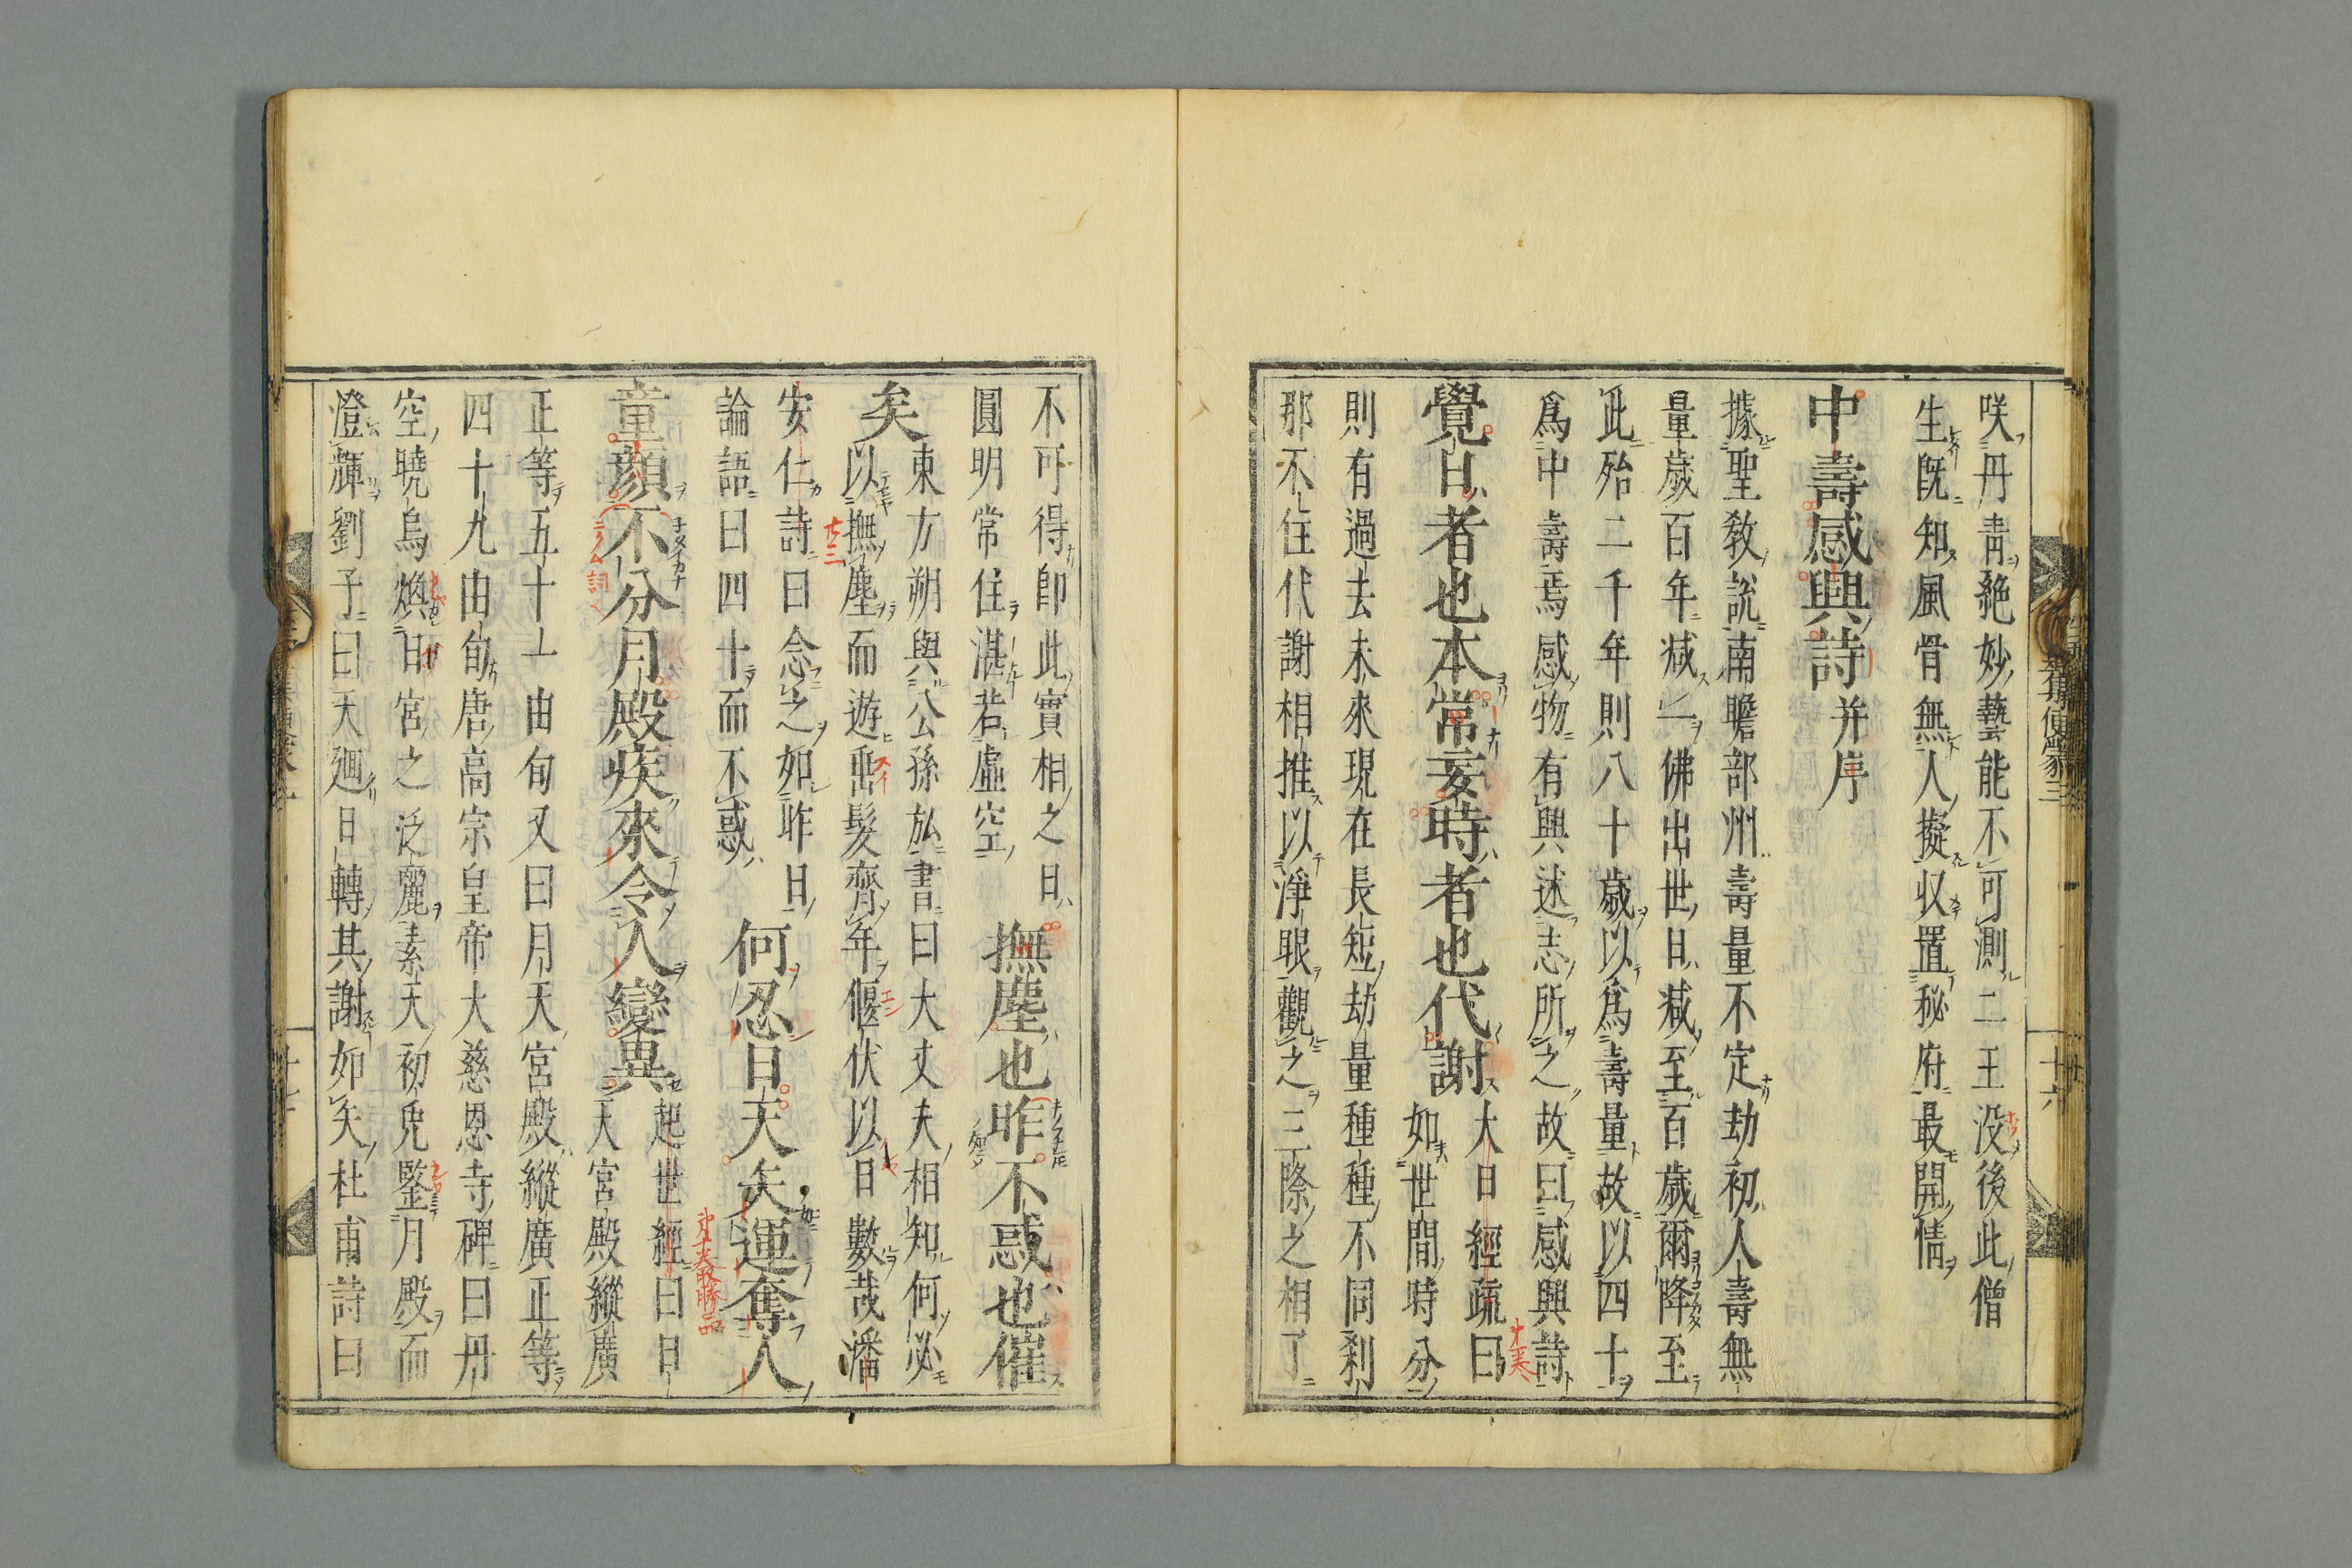 咲丹靑絶妙藝能不可測二王没後此僧
生既知風骨無人擬収置秘府最開情
中壽感興詩并序
據聖教說南瞻部州壽量不定劫初人壽無
量歲百年减一佛出世日减至百歲爾降至
此殆二千年則八十歲以爲壽量故以四十
爲中壽焉感物有興述志所之故曰感興詩
覺日者也本常妄時者也代謝大日經疏曰
如世間時分
則有過去未來現在長短劫量種種不同刹
那不住代謝相推以淨眼觀之三際之相了
十六
不可得即此實相之日
圓明常住湛若虛空
撫塵也昨不惑也催
矣東方朔與公孫弘書曰大丈夫相知何必
以撫塵而遊垂髮齊年偃伏以日數哉潘
安仁詩曰念之如昨日
論語曰四十而不惑
何忍日天矢運奪人
童顔不分月殿疾來令人變異起世經曰日
天宮殿縱廣
正等五十一由旬又曰月天宮殿縱廣正等
四十九由旬唐高宗皇帝大慈恩寺碑曰丹
空曉烏煥日宮之泛麗素天初兎鑒月殿而
澄輝劉子曰天廻日轉其謝如矢杜甫詩曰